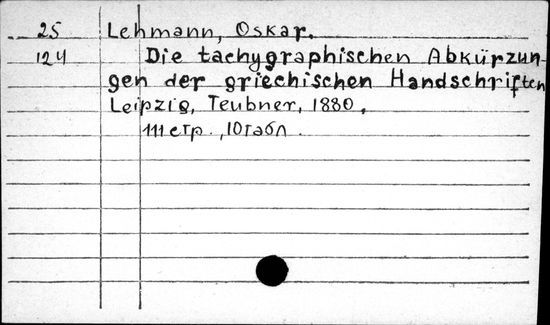 25 Lehmann, Oskar.
124 Die tachygraphischen Abkürzun-
gen der griechischen Handschriften
Leipzig, Teubner, 1880.
111 стр., 10 табл.